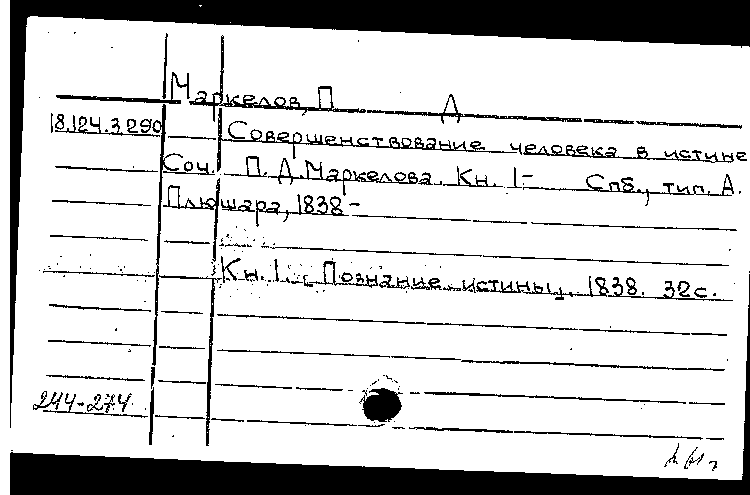 Маркелов, П Д
18.124.3.290
Совершенствование человека в истине
Соч. П. Д. Маркелова. Кн. 1- Спб., тип. А.
Плюшара, 1838-
Кн. 1. Познание истины, 1838. 32с.
244-274